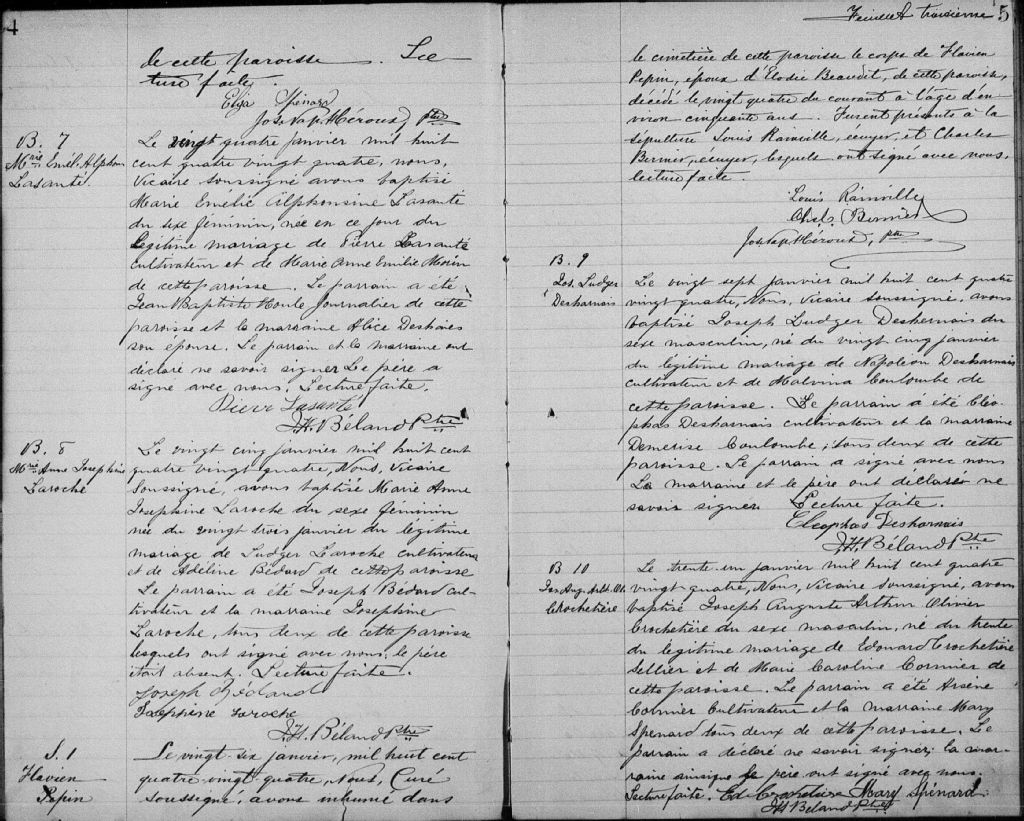 4
de cette paroisse. Lec-
ture faite.
Eliza Spénard
Jos. Nap. Héroux, Ptre
B. 7
Mrie Emél. Alphon.
Lasanté.
Le vingt quatre janvier mil huit
cent quatre vingt quatre, nous,
Vicaire soussigné avons baptisé
Marie Emélie Alphonsine Lasanté
du sexe féminin, née en ce jour du
légitime mariage de Pierre Lasanté
cultivateur et de Marie Anne Emilie Morin
de cette paroisse. Le parrain a été
Jean Baptiste Houle Journalier de cette
paroisse et la marraine Alice Deshaies
son épouse. Le parrain et la marraine ont
déclaré ne savoir signer Le père a
signé avec nous. Lecture faite.
Pierre Lasanté
J.H. Béland Ptre
B. 8
Mrie Anne Josephine
Laroche
Le vingt cinq janvier mil huit cent
quatre vingt quatre, Nous, Vicaire
Soussigné, avons baptisé Marie Anne
Josephine Laroche du sexe féminin
née du vingt trois janvier du légitime
mariage de Ludger Laroche cultivateur
et de Adéline Bédard de cette paroisse
Le parrain a été Joseph Bédard cul-
tivateur et la marraine Josephine
Laroche, tous deux de cette paroisse
lesquels ont signé avec nous, le père
était absent. Lecture faite.
Joseph
Josephine Laroche
J.H. Béland Ptre
S. 1
Flavien
Pepin
Le vingt-six janvier, mil huit cent
quatre-vingt-quatre, Nous, Curé
soussigné, avons inhumé dans
Feuillet troisième
5
le cimetière de cette paroisse le corps de Flavien
Pepin, époux d'Elodie Beaudet, de cette paroisse,
décédé le vingt quatre du courant à l'âge d'en-
viron cinquante ans. Furent présents à la
sépulture Louis Rainville, écuyer, et Charles
Bernier, écuyer, lesquels ont signé avec nous.
lecture faite.
Louis Rainville
Chs. Bernier
Jos. Nap. Héroux, Ptre
B. 9
Jos. Ludger
Desharnais
Le vingt sept janvier mil huit cent quatre
vingt quatre, Nous, Vicaire soussigné, avons
baptisé Joseph Ludger Desharnais du
sexe masculin, né du vingt cinq janvier
du légitime mariage de Napoléon Desharnais
cultivateur et de Malvina Coulombe de
cette paroisse. Le parrain a été Cléo-
phas Desharnais cultivateur et la marraine
Demerise Coulombe, tous deux de cette
paroisse. Le parrain a signé avec nous
La marraine et le père ont déclaré ne
savoir signer. Lecture faite.
Cleophas Desharnais
J.H. Béland Ptre
B 10
Jos. Aug. Arth. Oli.
Crochetière
Le trente un janvier mil huit cent quatre
vingt quatre, Nous, Vicaire soussigné, avons
baptisé Joseph Auguste Arthur Olivier
Crochetière du sexe masculin, né du trente
du légitime mariage de Edouard Crochetière
Sellier et de Marie Caroline Cormier de
cette paroisse. Le parrain a été Arsène
Cormier Cultivateur et la marraine Mary
Spenard tous deux de cette paroisse. Le
parrain a déclaré ne savoir signer, la mar-
raine ainsi que le père ont signé avec nous.
Lecture faite. Ed. Crochetière Mary Spénard.
J H Béland Ptre